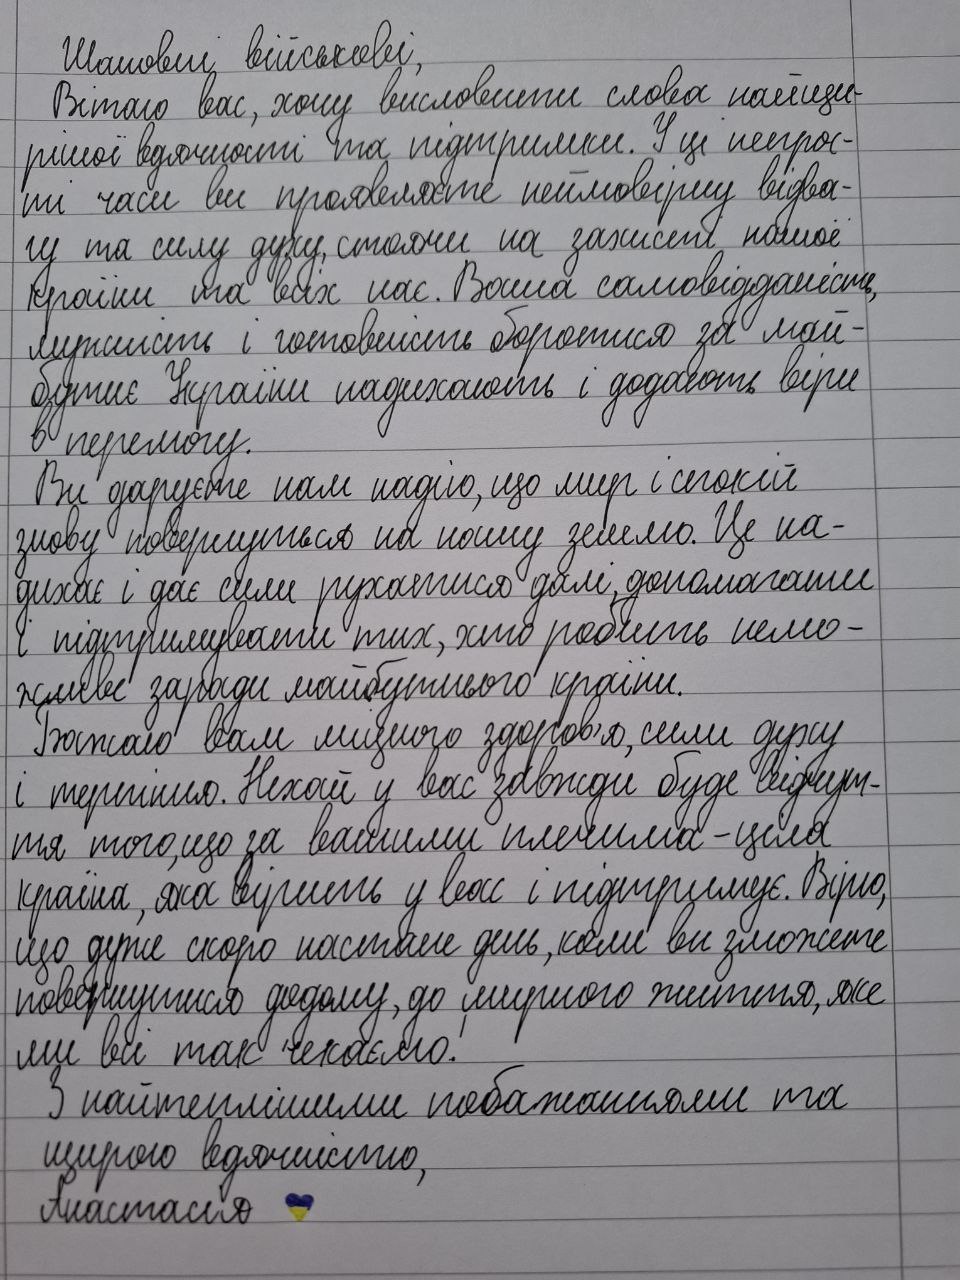 Шановні військові,
Вітаю вас, хочу висловити слова найщи-
рішої вдячності та підтримки. У ці непрос-
ті часи ви проявляєте неймовірну відва-
гу та силу духу, стоячи на захисті нашої
країни та всіх нас. Ваша самовідданість,
мужність і готовність боротися за май-
бутнє України надихають і додають віри
в перемогу.
Ви даруєте нам надію, що мир і спокій
знову повернуться на нашу землю. Це на-
дихає і дає сили рухатися далі, допомагати
і підтримувати тих, хто робить немо-
жливе заради майбутнього країни.
Бажаю вам міцного здоров'я, сили духу
і терпіння. Нехай у вас завжди буде відчут-
тя того, що за вашими плечима - ціла
країна, яка вірить у вас і підтримує. Вірю,
що дуже скоро настане день, коли ви зможете
повернутися додому, до мирного життя, яке
ми всі так чекаємо!
З найтеплішими побажаннями та
щирою вдячністю,
Анастасія